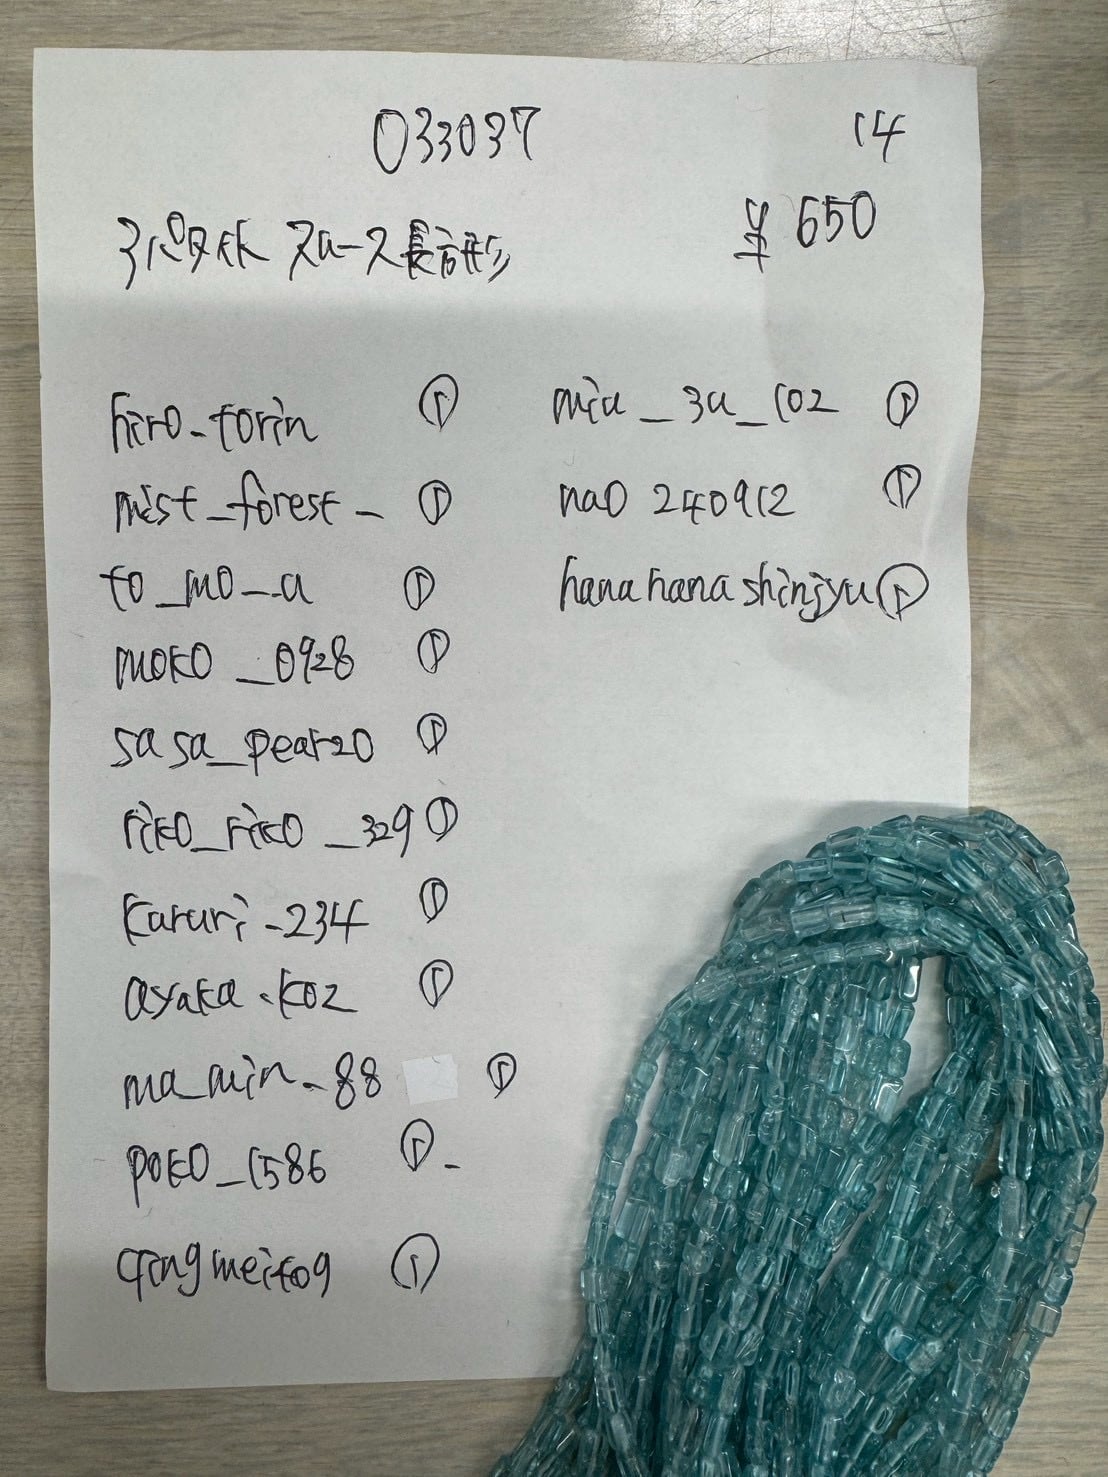 033037
14
¥650
長方形
hiro_torin ①
mist_forest_ ①
to_mo_a ①
moko_0928 ①
sasa_pear20 ①
riko_riko_329 ①
karuri_234 ①
ayaka.k02 ①
ma_min_88 ①
poko_1586 ①
qingmeito9 ①
miu_3u_102 ①
nao 240912 ①
hanahanashinjyu ①